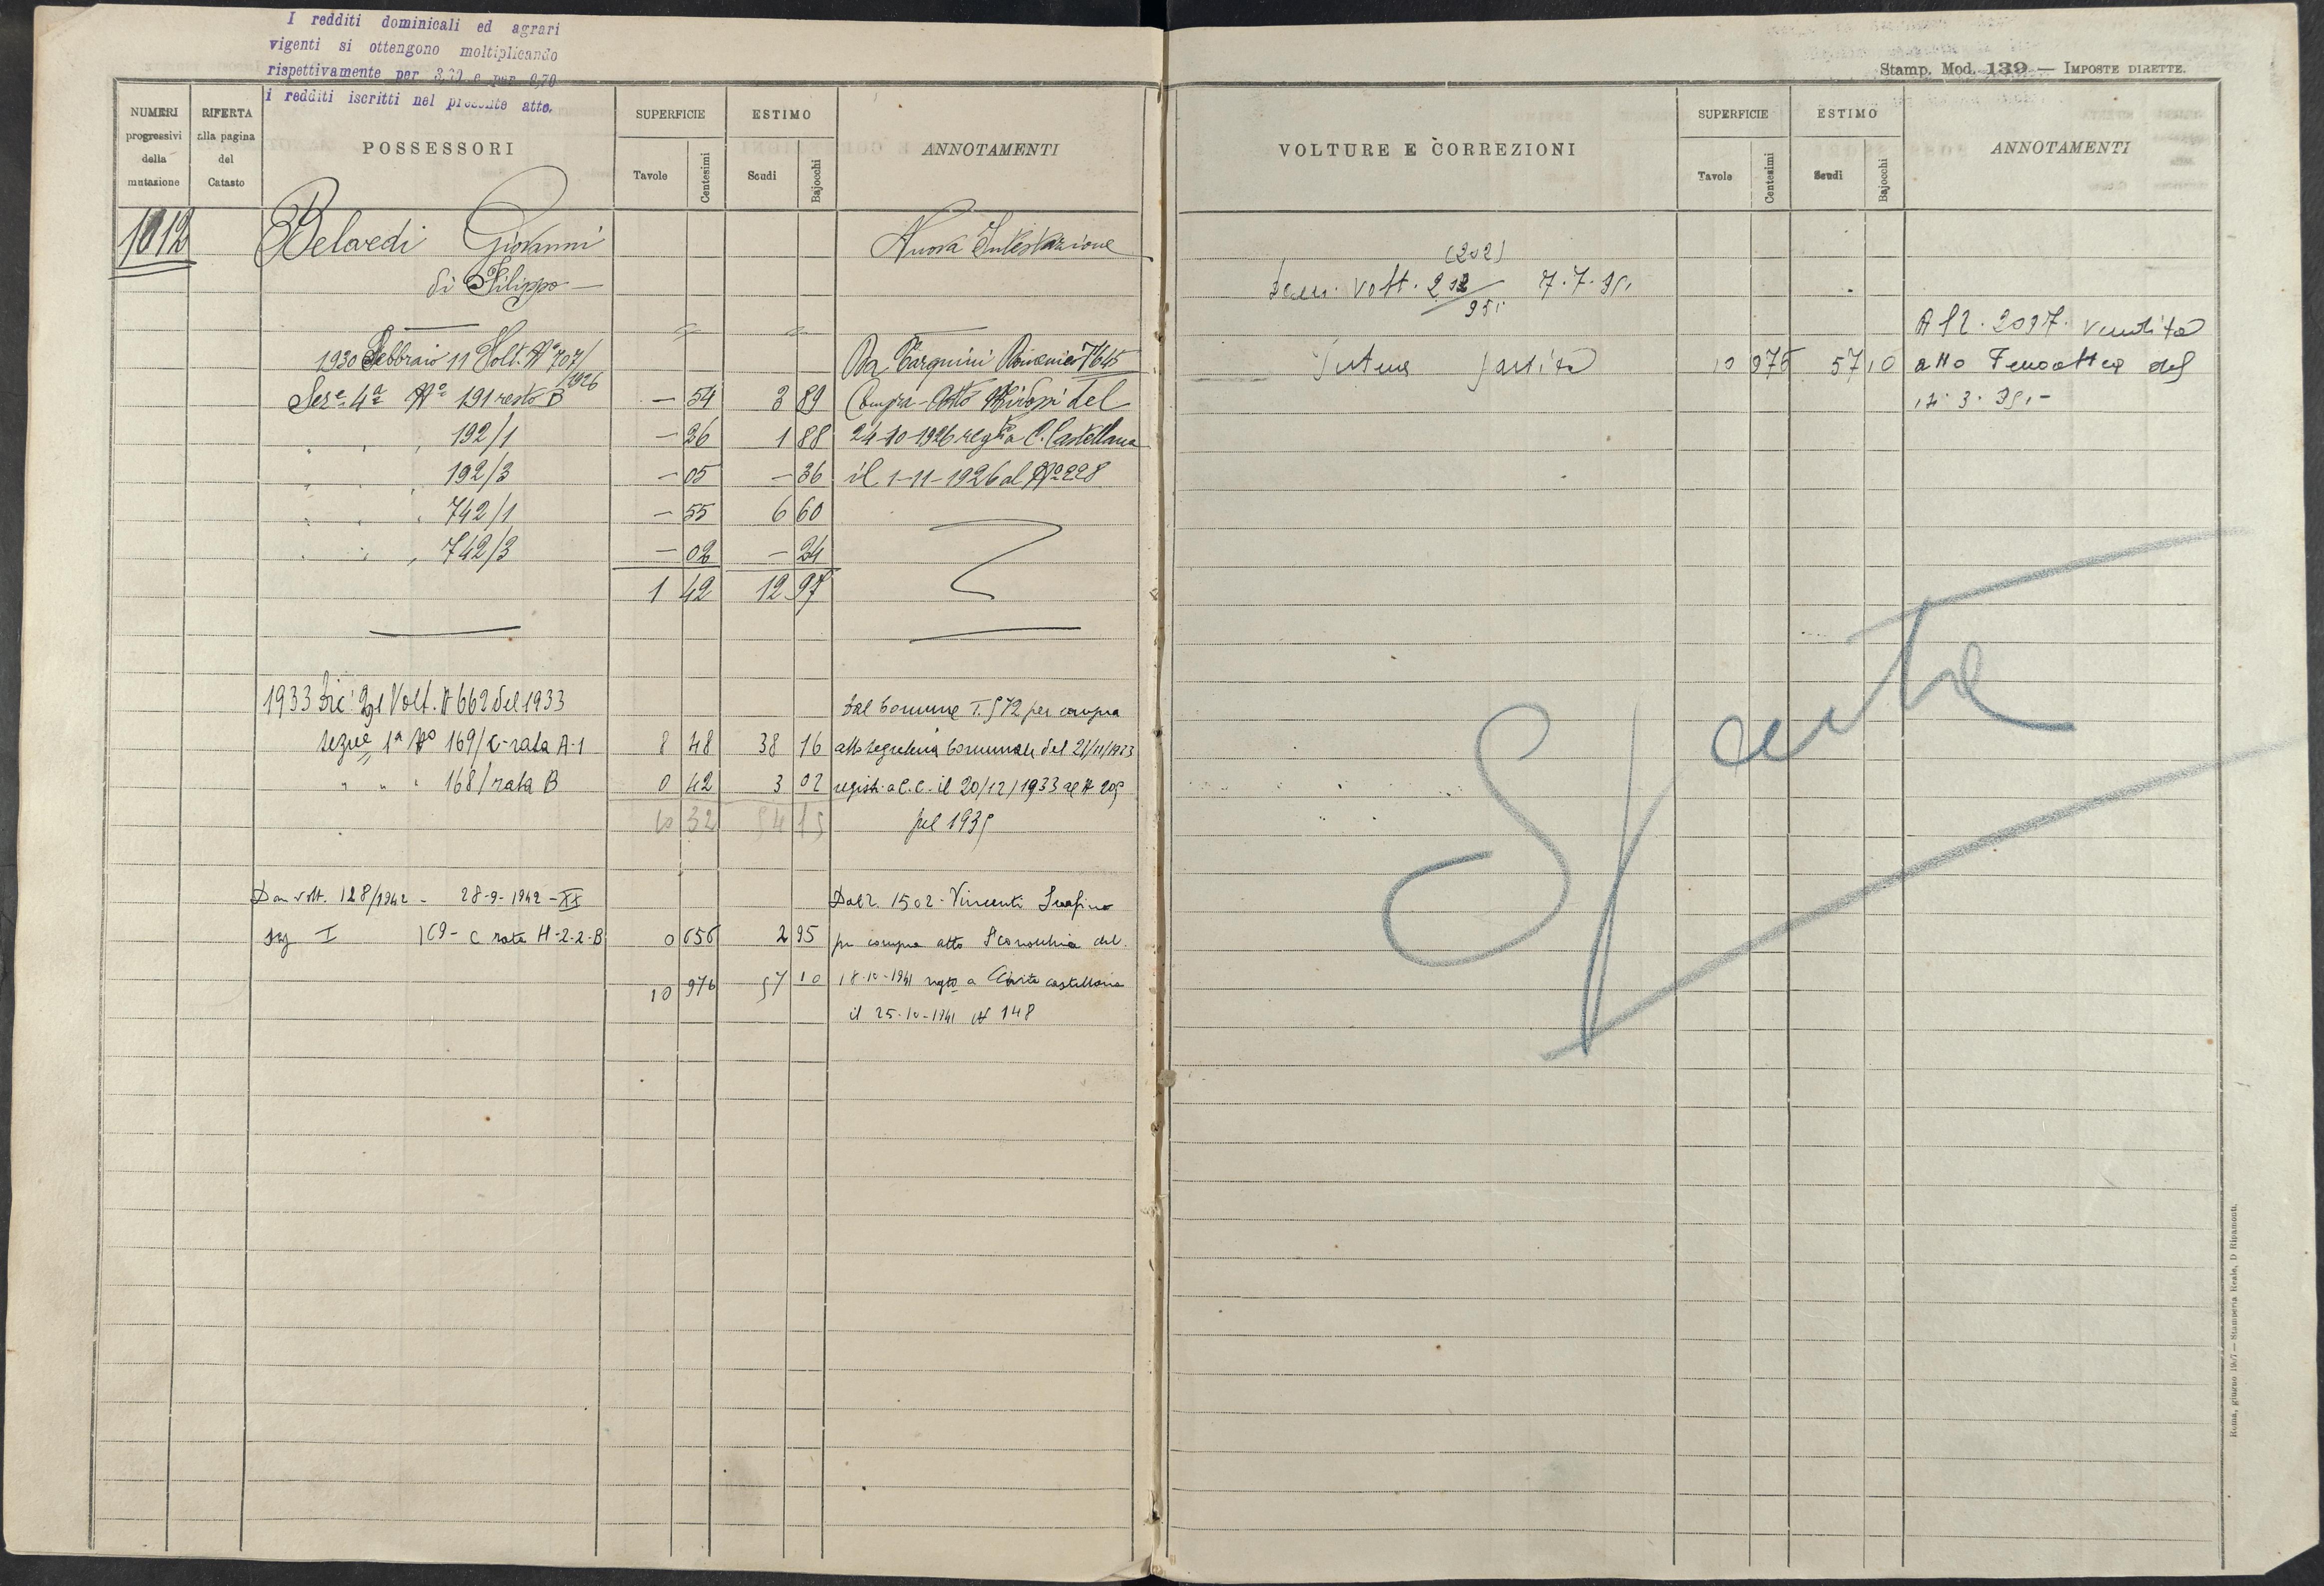 I redditi dominicali ed agrari
vigenti si ottengono moltiplicando
rispettivamente per 3,30 e per 0,70
i redditi iscritti nel presente atto.
NUMERI progressivi della mutazione
RIFERTA alla pagina del Catasto
POSSESSORI
SUPERFICIE
Tavole Centesimi
ESTIMO
Scudi Bajocchi
ANNOTAMENTI
1012 Belardi Giovanni Nuova Intestazione
di Filippo
1930 Febbraio 11 Volt. Nº 707/1926 Da Tarquini
Sez.e 4a Nº 191 resto B — 54 3 89 Compra - Atto del
" " " 192/1 — 26 1 88 24-10-1926 reg.to a C. Castellana
" " " 192/3 — 05 — 36 il 1-11-1926 al Nº 228
" " " 742/1 — 55 6 60
" " " 742/3 — 02 — 24
1 42 12 97
1933 Dic. Volt. N 662 del 1933 Dal Comune T. 572 per compra
sezne 1a No 169/C-rata A-1 8 48 38 16 atto segreteria Comunale del
" " " 168/rata B 0 42 3 02 regist. a C. C. il 20/12/1933 al N 205
10 32 54 15 pel 1935
Dom volt. 128/1942 - 28-9-1942-XX Dal 2. 1502 - Vincenti Serafino
sez I 169- C rata H-2-2-B 0 656 2 95 per compra atto del
10 976 57 10 18-10-1941 regto a Civita castellana
il 25-10-1941 N 148
Stamp. Mod. 139 — IMPOSTE DIRETTE.
VOLTURE E CORREZIONI
SUPERFICIE
Tavole Centesimi
ESTIMO
Scudi Bajocchi
ANNOTAMENTI
(202)
volt. 212/951 7.7.951
Al 2. 2097. vendita
Intera partita 10 976 57 10 atto del
Spenta
Roma, giugno 1927 — Stamperia Reale, D Ripamonti.